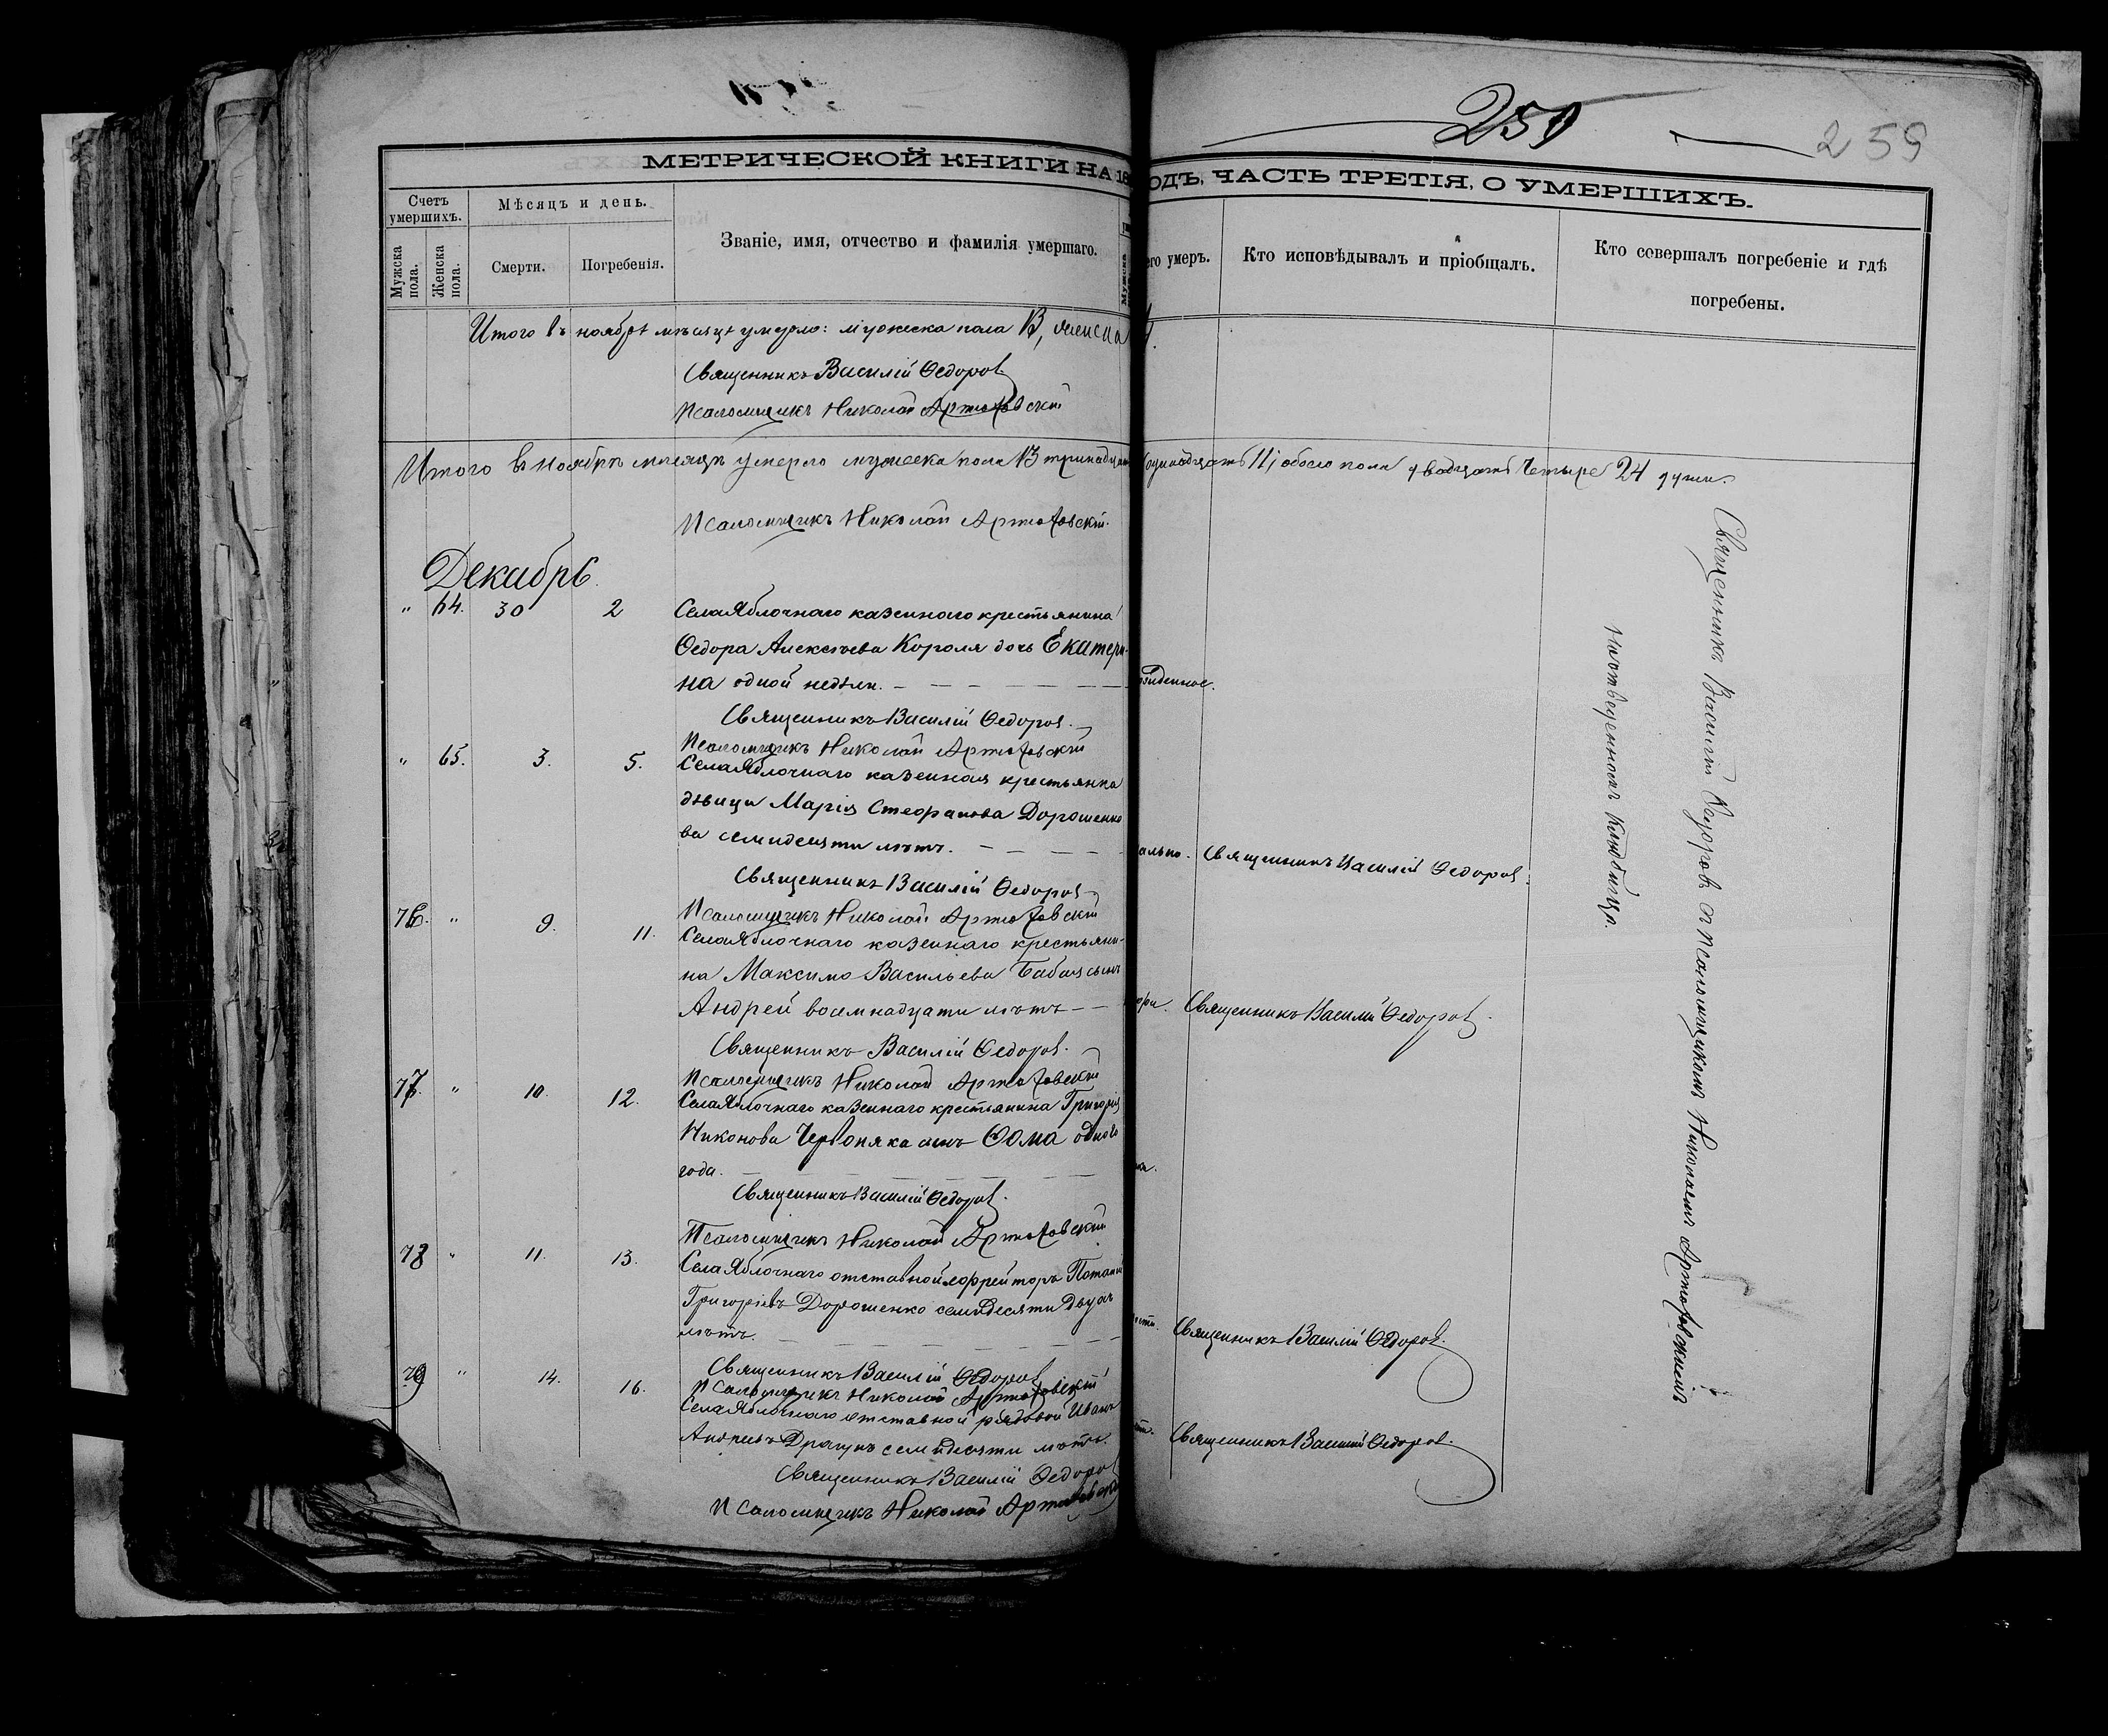 259
259
МЕТРИЧЕСКОЙ КНИГИ НА 18
ОДЪ, ЧАСТЬ ТРЕТІЯ, О УМЕРШИХЪ.
Счетъ умершихъ.
Мѣсяцъ и день.
Званіе, имя, отчество и фамилія умершаго.
его умеръ.
Кто исповѣдывалъ и пріобщалъ.
Кто совершалъ погребеніе и гдѣ
погребены.
Мужска пола.
Женска пола.
Смерти.
Погребенія.
Мужска
Итого въ ноябрѣ мѣсяцѣ умерло: мужеска пола 13, женска
Священникъ Василій Ѳедоровъ
Псаломщикъ Николай Артюховскій
Итого въ Ноябрѣ мѣсяцѣ умерло мужеска пола 13 тринадцать одинадцать 11; обоего пола двадцать четыре 24 души.
Псаломщикъ Николай Артюховскій.
Декабрь
" 64. 30 2 Села Яблочнаго казеннаго крестьянина
Ѳедора Алексѣева Короля дочь Екатери-
на одной недѣли.
Священникъ Василій Ѳедоровъ.
Псаломщикъ Николай Артюховскій
" 65. 3. 5. Села Яблочнаго казенная крестьянка
дѣвица Марія Стефанова Дорошенко
ва семидесяти лѣтъ. Священникъ Василій Ѳедоровъ.
Священникъ Василій Ѳедоровъ
Псаломщикъ Николай Артюховскій
76. " 9. 11. Села Яблочнаго казеннаго крестьяни-
на Максима Васильева Бабая сынъ
Андрей восемнадцати лѣтъ Священникъ Василій Ѳедоровъ.
Священникъ Василій Ѳедоровъ.
Псаломщикъ Николай Артюховскій
77. " 10. 12. Села Яблочнаго казеннаго крестьянина Григорія
Никонова Червоняка сынъ Ѳома одного
года.
Священникъ Василій Ѳедоровъ.
Псаломщикъ Николай Артюховскій
78 " 11. 13. Села Яблочнаго отставной ефрейторъ Потапій
Григорьевъ Дорошенко семидесяти двухъ
лѣтъ. Священникъ Василій Ѳедоровъ.
Священникъ Василій Ѳедоровъ
Псаломщикъ Николай Артюховскій
79 " 14. 16. Села Яблочнаго отставной рядовой Иванъ
Андреевъ Драгунъ семидесяти лѣтъ. Священникъ Василій Ѳедоровъ.
Священникъ Василій Ѳедоровъ
Псаломщикъ Николай Артюховскій
Священникъ Василій Ѳедоровъ съ Псаломщикомъ Николаемъ Артюховскимъ
На отведенномъ кладбищѣ.